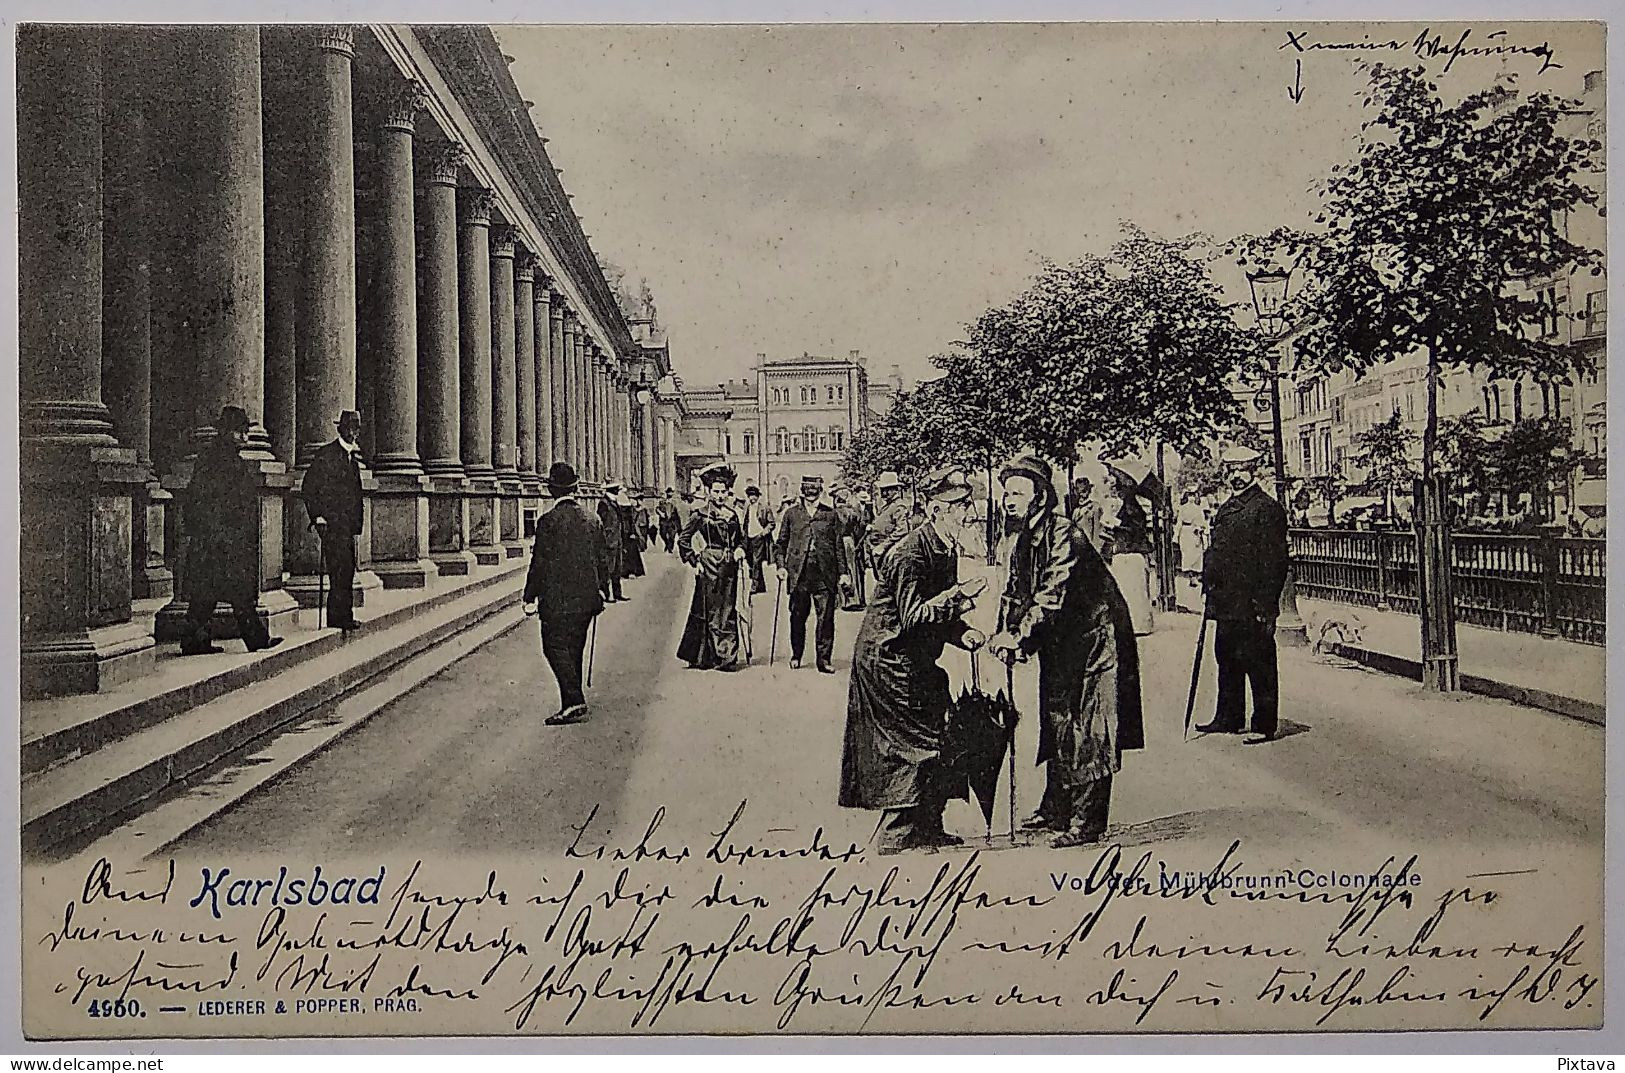 x meine Wohnung
Lieber Bruder,
Aus Karlsbad sende ich Dir die herzlichsten Glückwünsche zu
Vor der Mühlbrunn-Colonnade
Deinem Geburtstage, Gott erhalte Dich mit Deinen Lieben recht
gesund. Mit den herzlichsten Grüßen an Dich u. Käthe bin ich D. J.
4950. — LEDERER & POPPER, PRAG.
www.delcampe.net
Pixtava